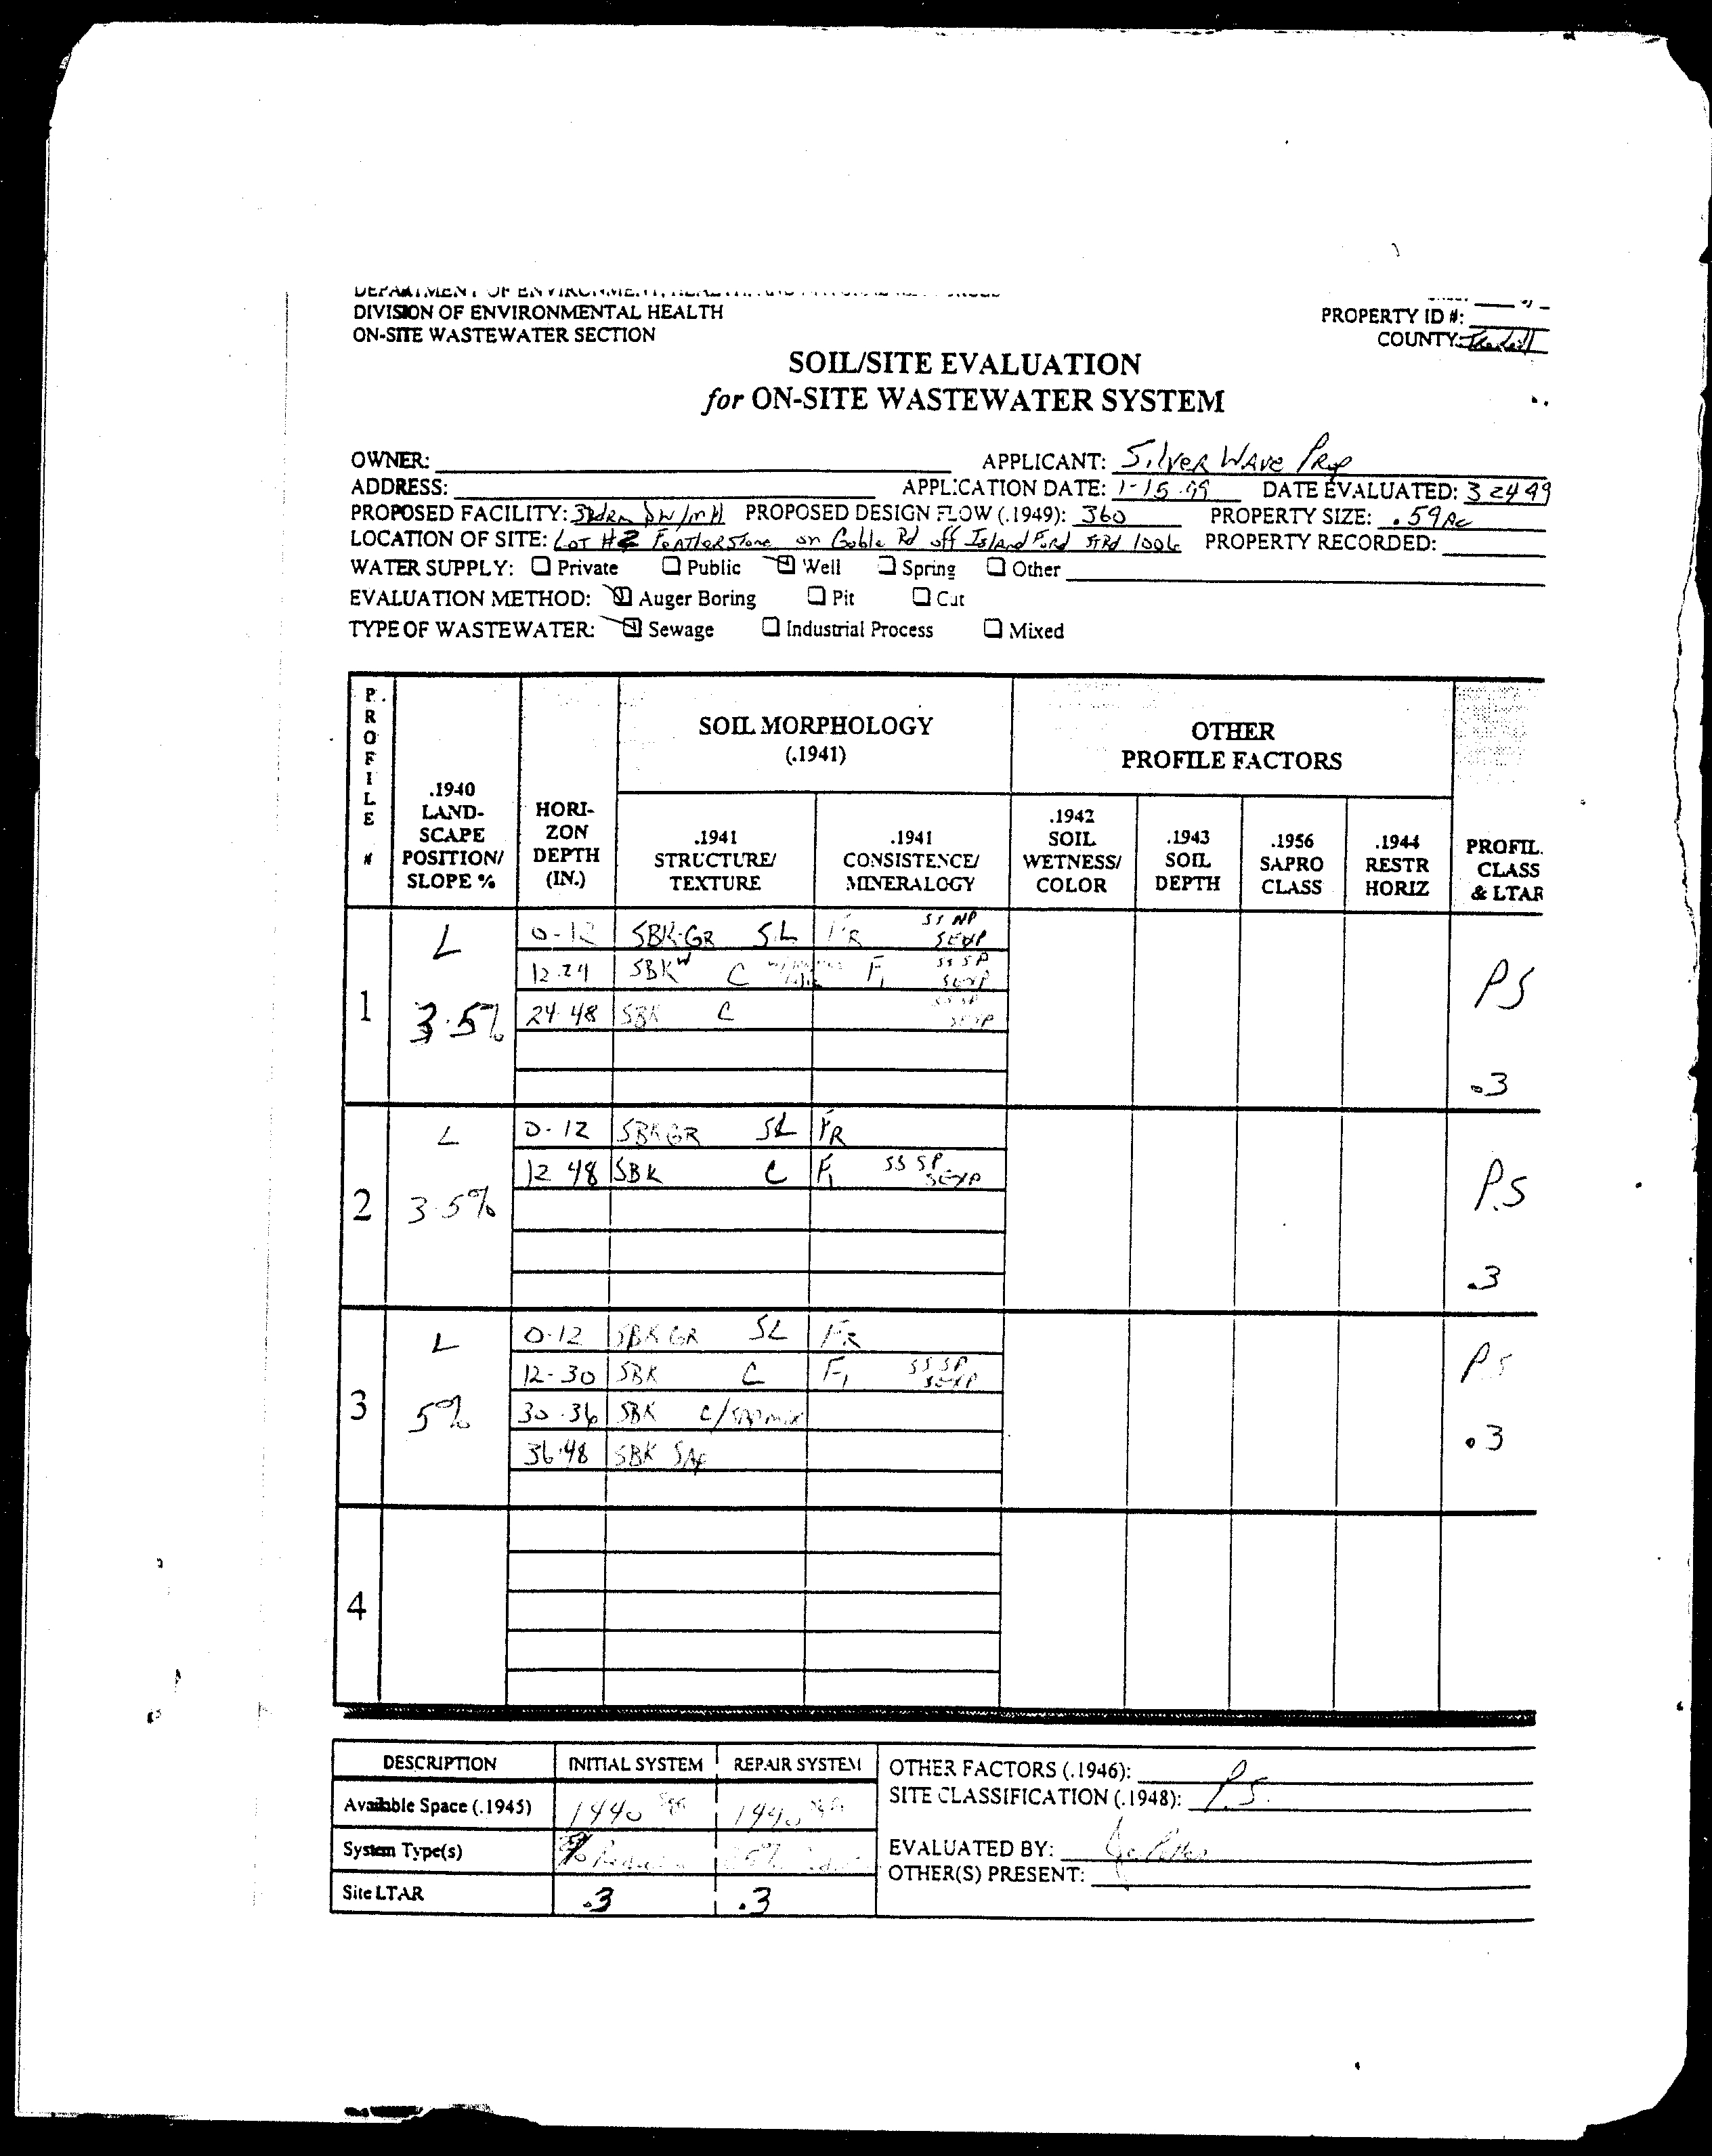 DEPARTMENT OF ENVIRONMENT, HEALTH
DIVISION OF ENVIRONMENTAL HEALTH
ON-SITE WASTEWATER SECTION
PROPERTY ID #:
COUNTY: Iredell
SOIL/SITE EVALUATION
for ON-SITE WASTEWATER SYSTEM
OWNER: APPLICANT: Silver Wave Prop
ADDRESS: APPLICATION DATE: 1-15-99 DATE EVALUATED: 3 24 99
PROPOSED FACILITY: 3Bdrm DW/MH PROPOSED DESIGN FLOW (.1949): 360 PROPERTY SIZE: .59Ac
LOCATION OF SITE: Lot #2 Featherstone on Goble Rd off Island Ford Rd 1006 PROPERTY RECORDED:
WATER SUPPLY: Private Public Well Spring Other
EVALUATION METHOD: Auger Boring Pit Cut
TYPE OF WASTEWATER: Sewage Industrial Process Mixed
PROFILE #
.1940 LAND-SCAPE POSITION/ SLOPE %
HORI-ZON DEPTH (IN.)
SOIL MORPHOLOGY (.1941)
.1941 STRUCTURE/ TEXTURE
.1941 CONSISTENCE/ MINERALOGY
OTHER PROFILE FACTORS
.1942 SOIL WETNESS/ COLOR
.1943 SOIL DEPTH
.1956 SAPRO CLASS
.1944 RESTR HORIZ
PROFIL. CLASS & LTAR
1 L 3-5% PS .3
0-12 SBK-GR SL FR SS NP SEXP
12-24 SBK W C FI SS SP SEXP
24-48 SBK C SS SP SEXP
2 L 3-5% P.S .3
0-12 SBK GR SL FR
12 48 SBK C FI SS SP SEXP
3 L 5% PS .3
0-12 SBK GR SL FR
12-30 SBK C FI SS SP SEXP
30-36 SBK C/SAP mix
36-48 SBK SAP
4
DESCRIPTION INITIAL SYSTEM REPAIR SYSTEM
Available Space (.1945) 1440 1440
System Type(s) 25%
Site LTAR .3 .3
OTHER FACTORS (.1946):
SITE CLASSIFICATION (.1948): P.S.
EVALUATED BY:
OTHER(S) PRESENT: